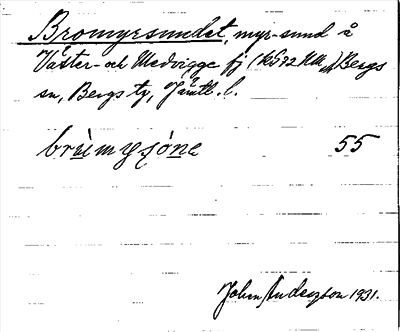 Bromyrsundet, myr-sund å
Väster- och Medvigge fj (kS 72 NV,) Bergs
sn, Bergs tg, Jämtl. l.
55
John Anderzson 1931.